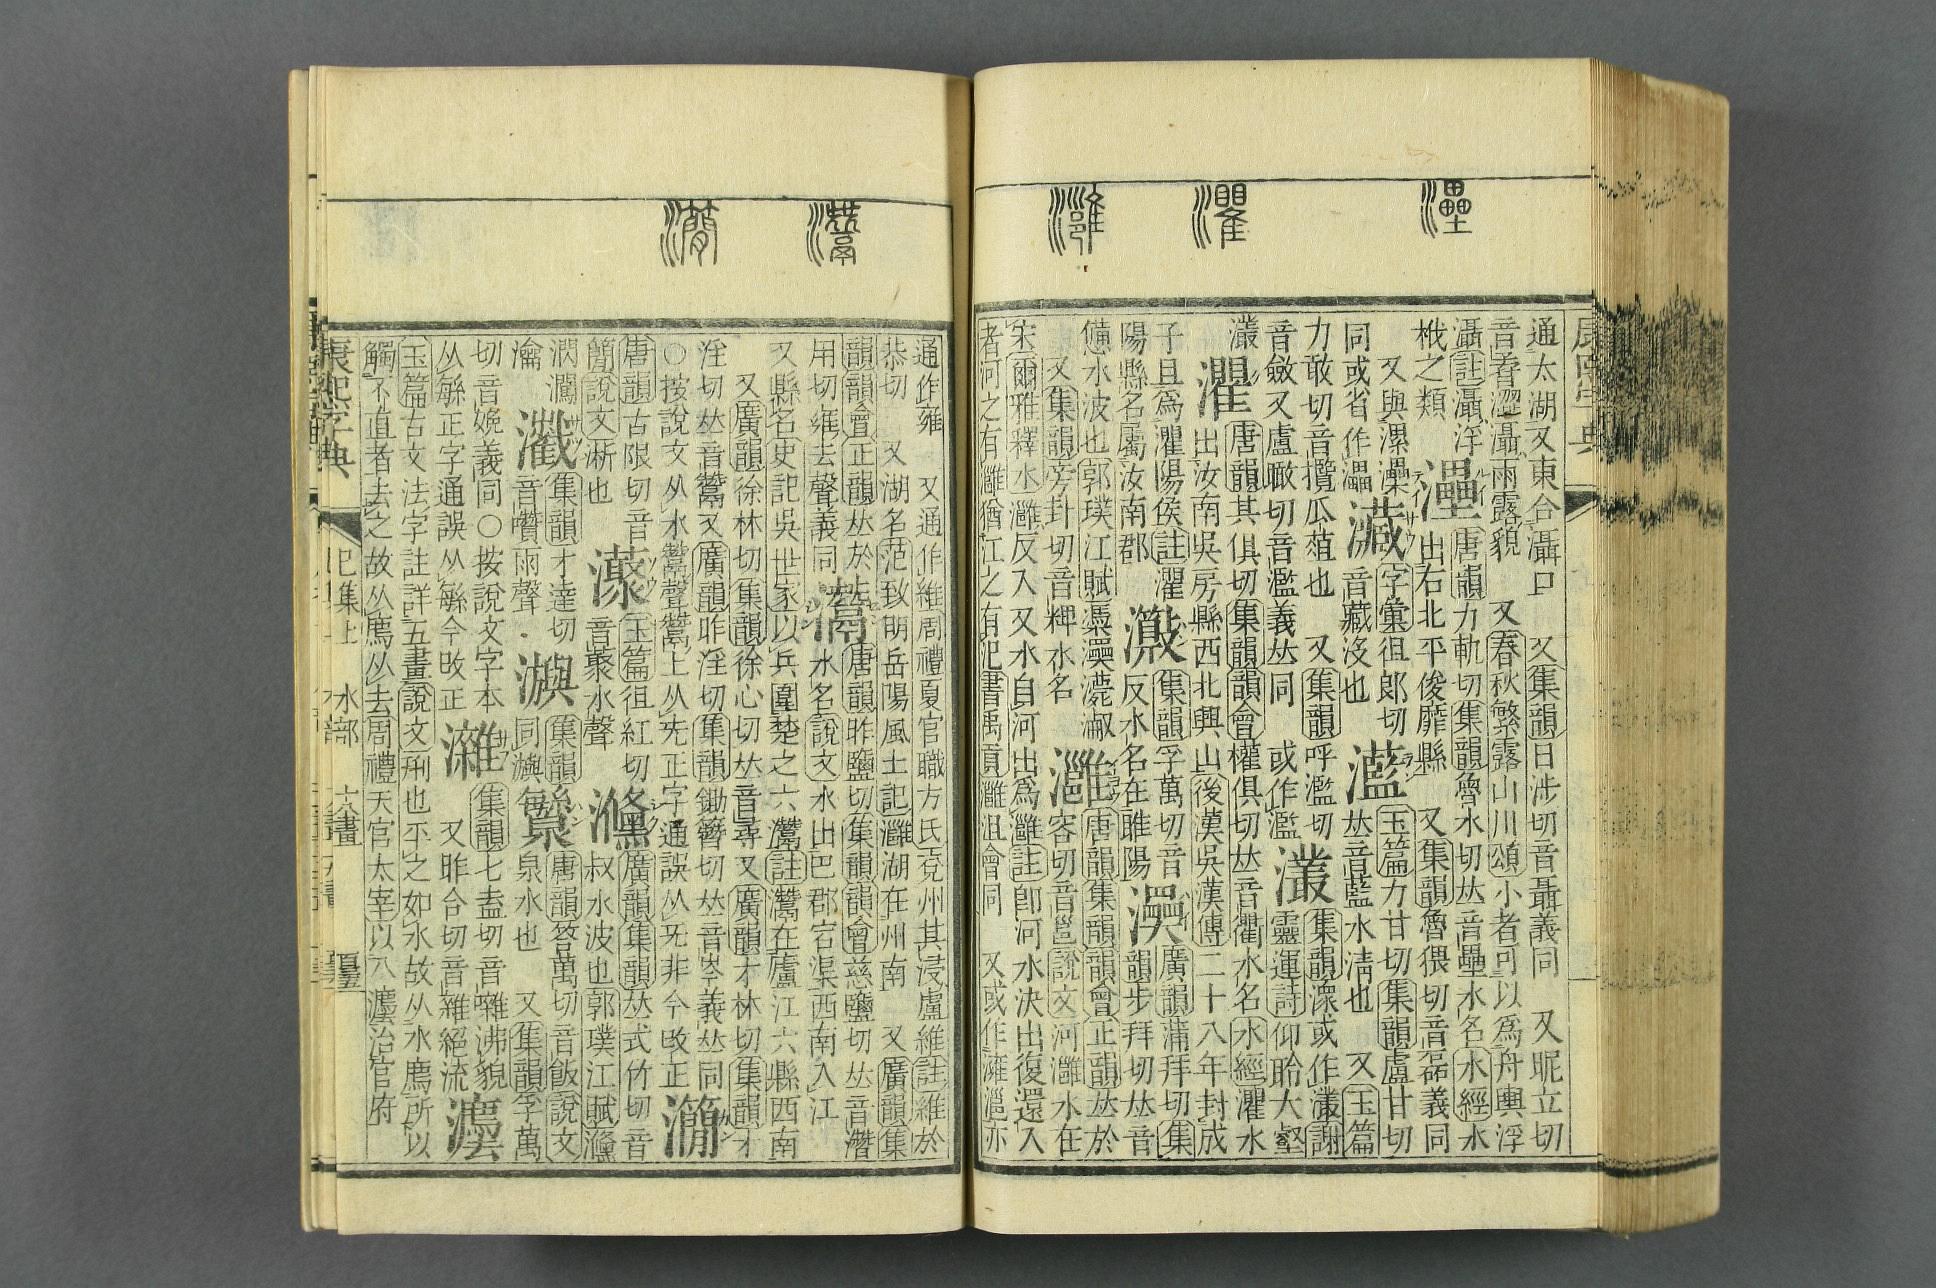 灅
灈
灉
通太湖又東合灄口　又集韻日涉切音聶義同　又昵立切
音𣅿澀灄雨露貌　又春秋繁露山川頌小者可以爲舟輿浮
灄註灄浮
栰之類
灅
唐韻力軌切集韻魯水切𠀤音壘水名水經水
出右北平俊靡縣　又集韻魯猥切音磊義同
又與漯灢
同或省作㶟
灙
字彙徂郎切
音藏沒也
灆
玉篇力甘切集韻盧甘切
𠀤音藍水淸也　又玉篇
力敢切音攬瓜葅也　又集韻呼濫切
音斂又盧瞰切音濫義𠀤同　或作濫
灇
集韻潀或作灇謝
靈運詩仰聆大壑
灇
灈
唐韻其俱切集韻韻會權俱切𠀤音衢水名水經灈水
出汝南吳房縣西北興山後漢吳漢傳二十八年封成
子且爲灈陽侯註灈
陽縣名屬汝南郡
集韻孚萬切音
反水名在睢陽
廣韻蒲拜切集
韻步拜切𠀤音
憊水波也郭璞江賦
灉
唐韻集韻韻會正韻𠀤於
容切音邕說文河灉水在
宋爾雅釋水灉反入又水自河出爲灉註卽河水決出復還入
者河之有灉猶江之有沱書禹貢灉沮會同　又或作澭灉亦
灊
灡
通作雍　又通作維周禮夏官職方氏兗州其浸盧維註維於
恭切　又湖名范致明岳陽風土記灉湖在州南　又廣韻集
韻韻會正韻𠀤於
用切雍去聲義同
灊
唐韻昨鹽切集韻韻會慈鹽切𠀤音潛
水名說文水出巴郡宕渠西南入江
又縣名史記吳世家以兵圍楚之六灊註灊在廬江六縣西南
又廣韻徐林切集韻徐心切𠀤音尋又廣韻才林切集韻才
淫切𠀤音鬵又廣韻昨淫切集韻鋤簪切𠀤音岑義𠀤同
○按說文从水鬵聲鬵上从兂正字通誤从旡非今改正
唐韻古限切音
簡說文淅也
灇
玉篇徂紅切
音叢水聲
廣韻集韻𠀤式竹切音
叔水波也郭璞江賦
集韻才達切
音囋雨聲
集韻
同
灥
唐韻答萬切音飯說文
泉水也　又集韻孚萬
切音娩義同○按說文字本
从緐正字通誤从緜今改正
集韻七盍切音囃沸貌
又昨合切音雜絕流
灋
玉篇古文法字註詳五畫說文𠛬也平之如水故从水廌所以
觸不直者去之故从廌从去周禮天官太宰以八灋治官府
康熙字典
巳集上
水部